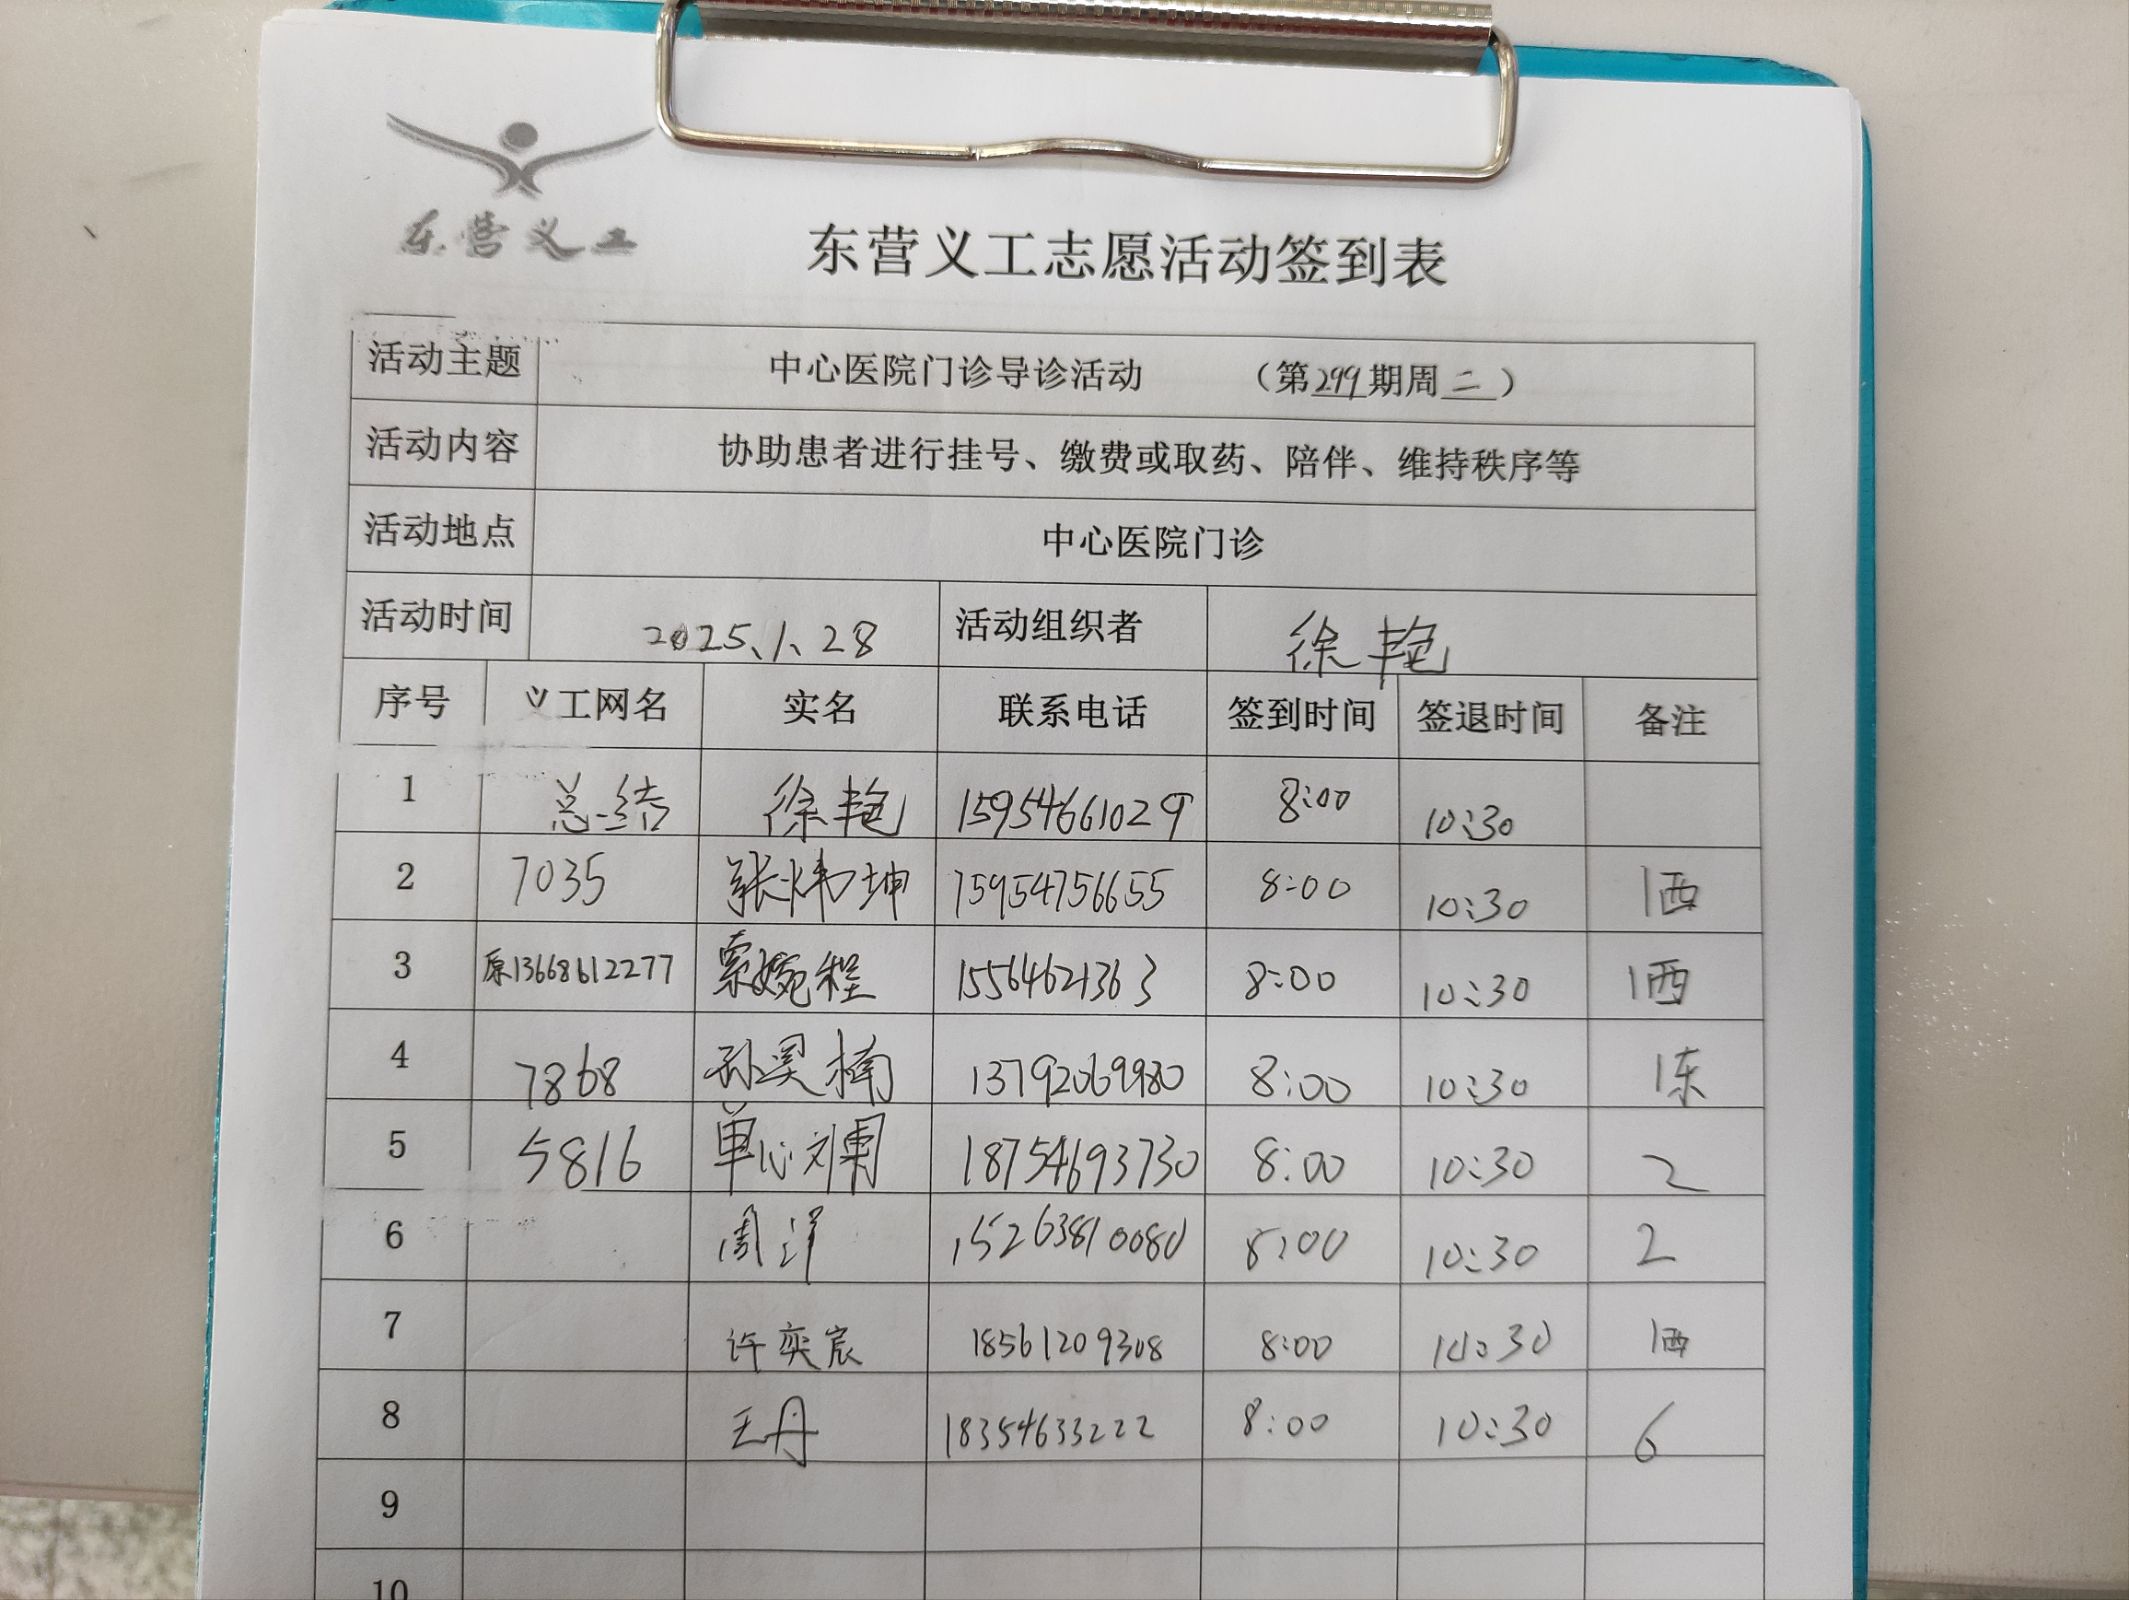 东营义工
东营义工志愿活动签到表
活动主题 中心医院门诊导诊活动 （第299期周二）
活动内容 协助患者进行挂号、缴费或取药、陪伴、维持秩序等
活动地点 中心医院门诊
活动时间 2025、1、28 活动组织者 徐艳
序号 义工网名 实名 联系电话 签到时间 签退时间 备注
1 总结 徐艳 15954661029 8:00 10:30
2 7035 张炜坤 15954756655 8:00 10:30 1西
3 原13668612277 索婉程 15564621363 8:00 10:30 1西
4 7868 孙昊楠 13792069980 8:00 10:30 1东
5 5816 单 18754693730 8:00 10:30 2
6 周洋 15263810080 8:00 10:30 2
7 许奕宸 18561209308 8:00 10:30 1西
8 王丹 18354633222 8:00 10:30 6
9
10